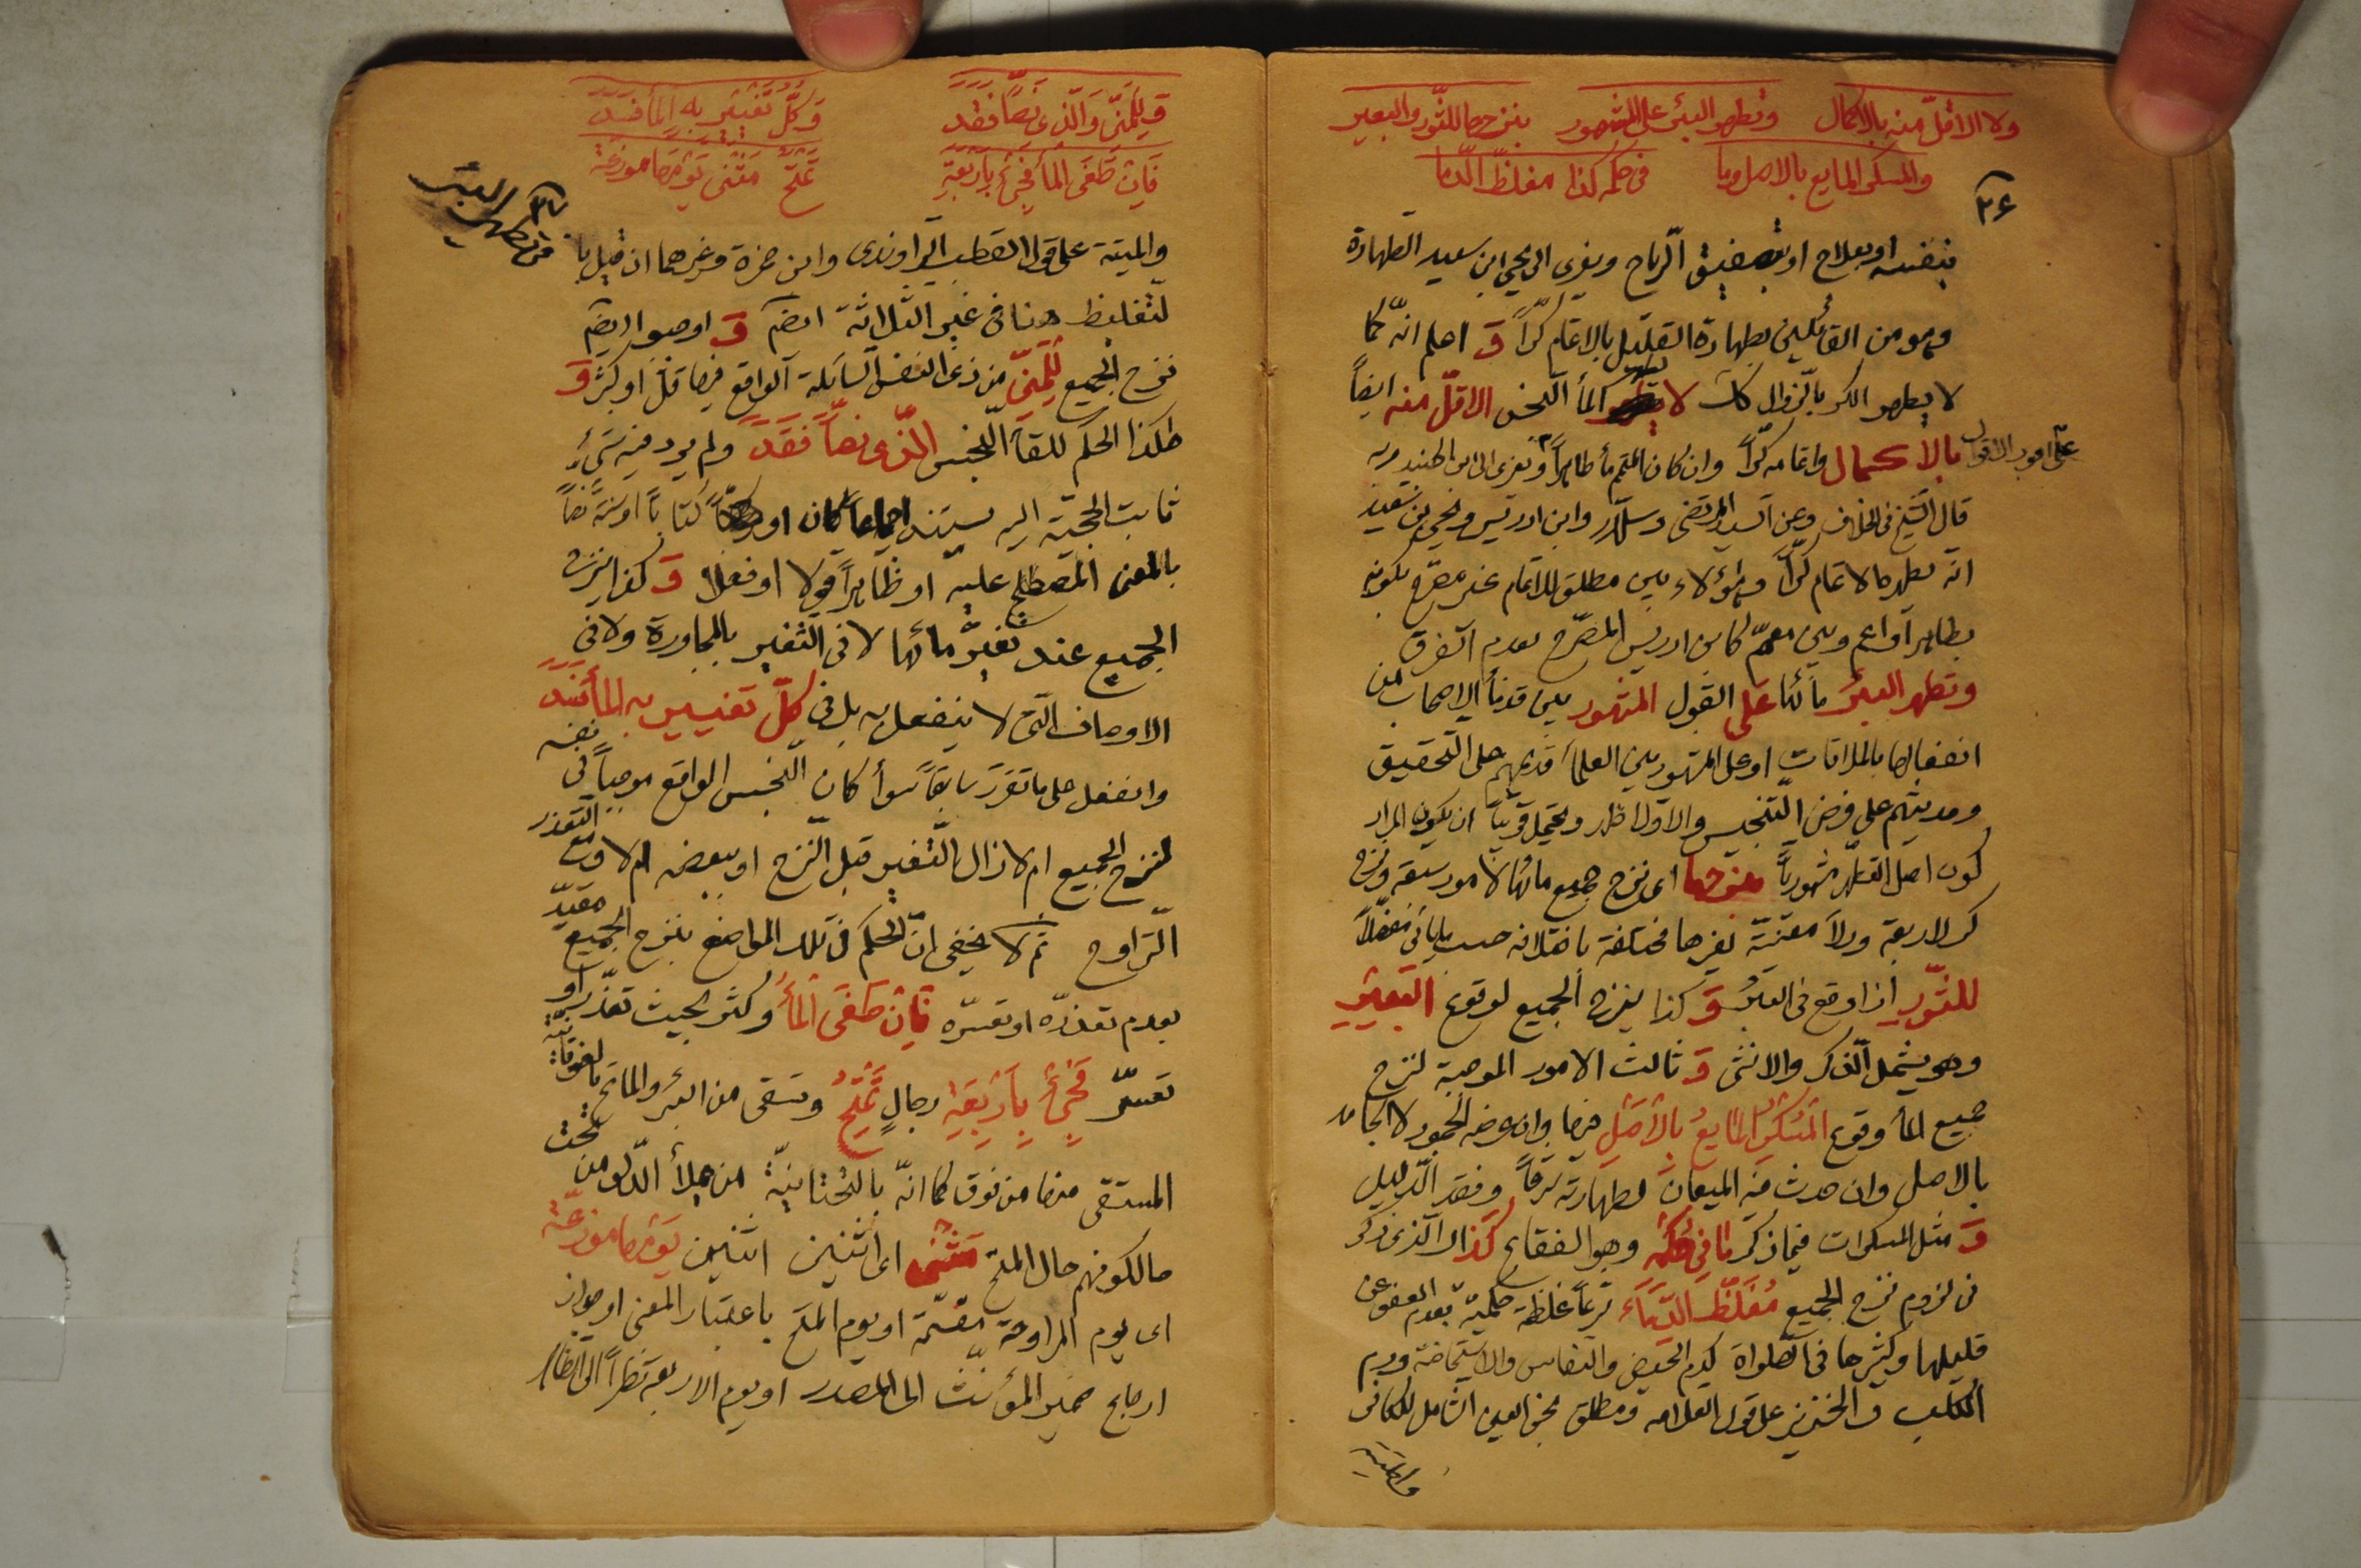 ولا الاقلّ منه بالاكمال وتطهر البئر على المشهور بنزحها للثّور والبعير
والمسكر المايع بالاصل وما فى حكمه كذا مغلظ الدّما
٣٤
بنفسه او بعلاج او بتصفيق الرّياح ويعزى الى يحيى ابن سعيد الطهارة
وهو من القائلين بطهارة القليل بالاتمام كرّاً وَ اعلم انّه كما
لا يطهر الكر بالزوال كك لا يطهر الماء النّجس الاقلّ منه ايضاً
بالاكمال واتمامه كرّاً وان كان المتمّم ماء طاهراً
على اقوى الاقوال
قال الشّيخ فى الخلاف وعن السيد المرتضى وسلّار وابن ادريس ويحيى بن سعيد
انّه يطهر بالاتمام كرّاً وهؤلاء بين مطلق للاتمام غير مصرّح بكونه
بطاهر او اعم وبين معمّم كابن ادريس المصرّح بعدم الفرق
وتطهر البئر مائها على القول المشهور بين قدماء الاصحاب من
انفعالها بالملاقات او على المشهور بين العلماء قديمهم على التّحقيق
وحديثهم على فرض التّنجيس والاوّل اظهر ويحتمل قويّاً ان يكون المراد
كون اصل التطهّر مشهوريّاً بنزحها اى نزح جميع مائها لامور سبعة ونزح
كر لاربعة ودلاء معيّنة لغيرها مختلفة باختلافه حسب ما يأتى مفصّلاً
للثّور اذا وقع فى البئر وَ كذا ينزح الجميع لوقوع البعير
وهو يشمل الذّكر والانثى وَ ثالث الامور الموجبة لنزح
جميع الماء وقوع المسكر المايع بالاصل فيها وان عرضه الجمود لا الجامد
بالاصل وان حدث فيه الميعان لطهارته شرعاً وفقد الدّليل
وَ مثل المسكرات فيما ذكر ما فى حكمه وهو الفقاع كذا الّذى ذكر
فى لزوم نزح الجميع مغلّظ الدّماء شرعاً غلظة حكميّة بعدم العفو عن
قليلها وكثيرها فى الصّلواة كدم الحيض والنفاس والاستحاضة ودم
الكلب والخنزير على قول العلامه ومطلق نجس العين الشامل للكافر
والميتة
وَلِلمَنِىّ وَالّذى نصّاً فَقَد وَكُلُّ تَغيير به الماء فسد
فَاِن طَغَى الماء فجئ باربعة تمتح مثنى يومها موزعة
٣٥
فى تطهير البئر
والميتة على قول القطب الرّاوندى وابن حمزة وغيرهما ان قيل با
لتغليظ هنا فى غير الثلاثة ايضم وَ اوجبوا ايضم
نزح الجميع للمنىّ من ذى النفس السّائلة الواقع فيها قلّ او كثر وَ
هكذا الحكم للقاء النّجس الّذى نصّاً فقد ولم يرد فيه شىءٌ
ثابت الحجّيّة اليه يستند اجماعاً كان او كتاباً او سنّة نصّاً
بالمعنى المصطلح عليه او ظاهراً قولا او فعلا وَ كذا ينزح
الجميع عند تغيّر مائها لا فى التّغير بالمجاورة ولا فى
الاوصاف الّتى لا ينفعل به بل فى كلّ تغيير به الماء فسد
وانفعل على ما تقرّر سابقاً سواء كان النّجس الواقع موجباً فى نفسه
لنزح الجميع ام لا زال التّغير قبل النّزح او ببعضه ام لا ومع التّعذر
التّراوح ثم لا يخفى انّ الحكم فى تلك المواضع بنزح الجميع مقيّد
بعدم تعذّره او تعسّره فان طغى الماء وكثر بحيث تعذّر او
تعسّر فجئ باربعة رجال تمتح وتسقى من البئر والماتح بالفوقانيّة
المستقى منها من فوق كما انّه بالتّحتانيّة من يملأ الدّلو من تحت
حالكونهم حال المتح مثنى اى اثنين اثنين يومها موزعة
اى يوم المراوحة مقسّمة او يوم المتح باعتبار المعنى او جواز
ارجاع ضمير المؤنّث الى المصدر او يوم الاربعة نظراً الى